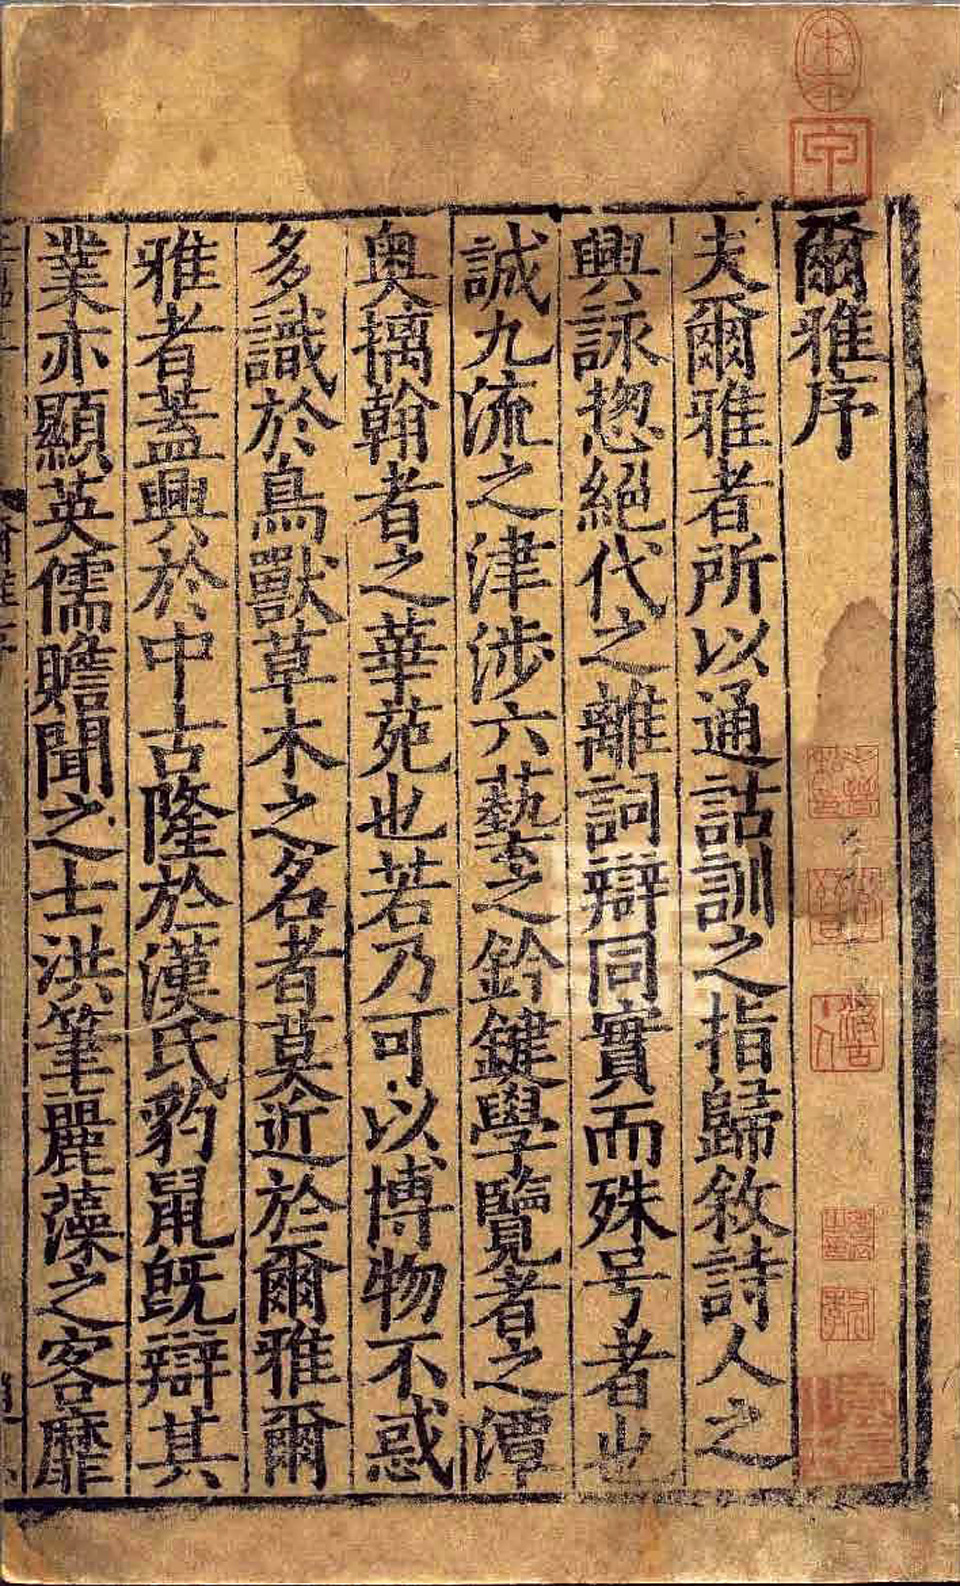 爾雅序
夫爾雅者所以通詁訓之指歸敘詩人之
興詠揔絕代之離詞辯同實而殊号者也
誠九流之津涉六藝之鈐鍵學覽者之潭
奥摛翰者之華苑也若乃可以博物不惑
多識於鳥獸草木之名者莫近於爾雅爾
雅者蓋興於中古隆於漢氏豹鼠旣辯其
業亦顯英儒贍聞之士洪筆麗藻之客靡